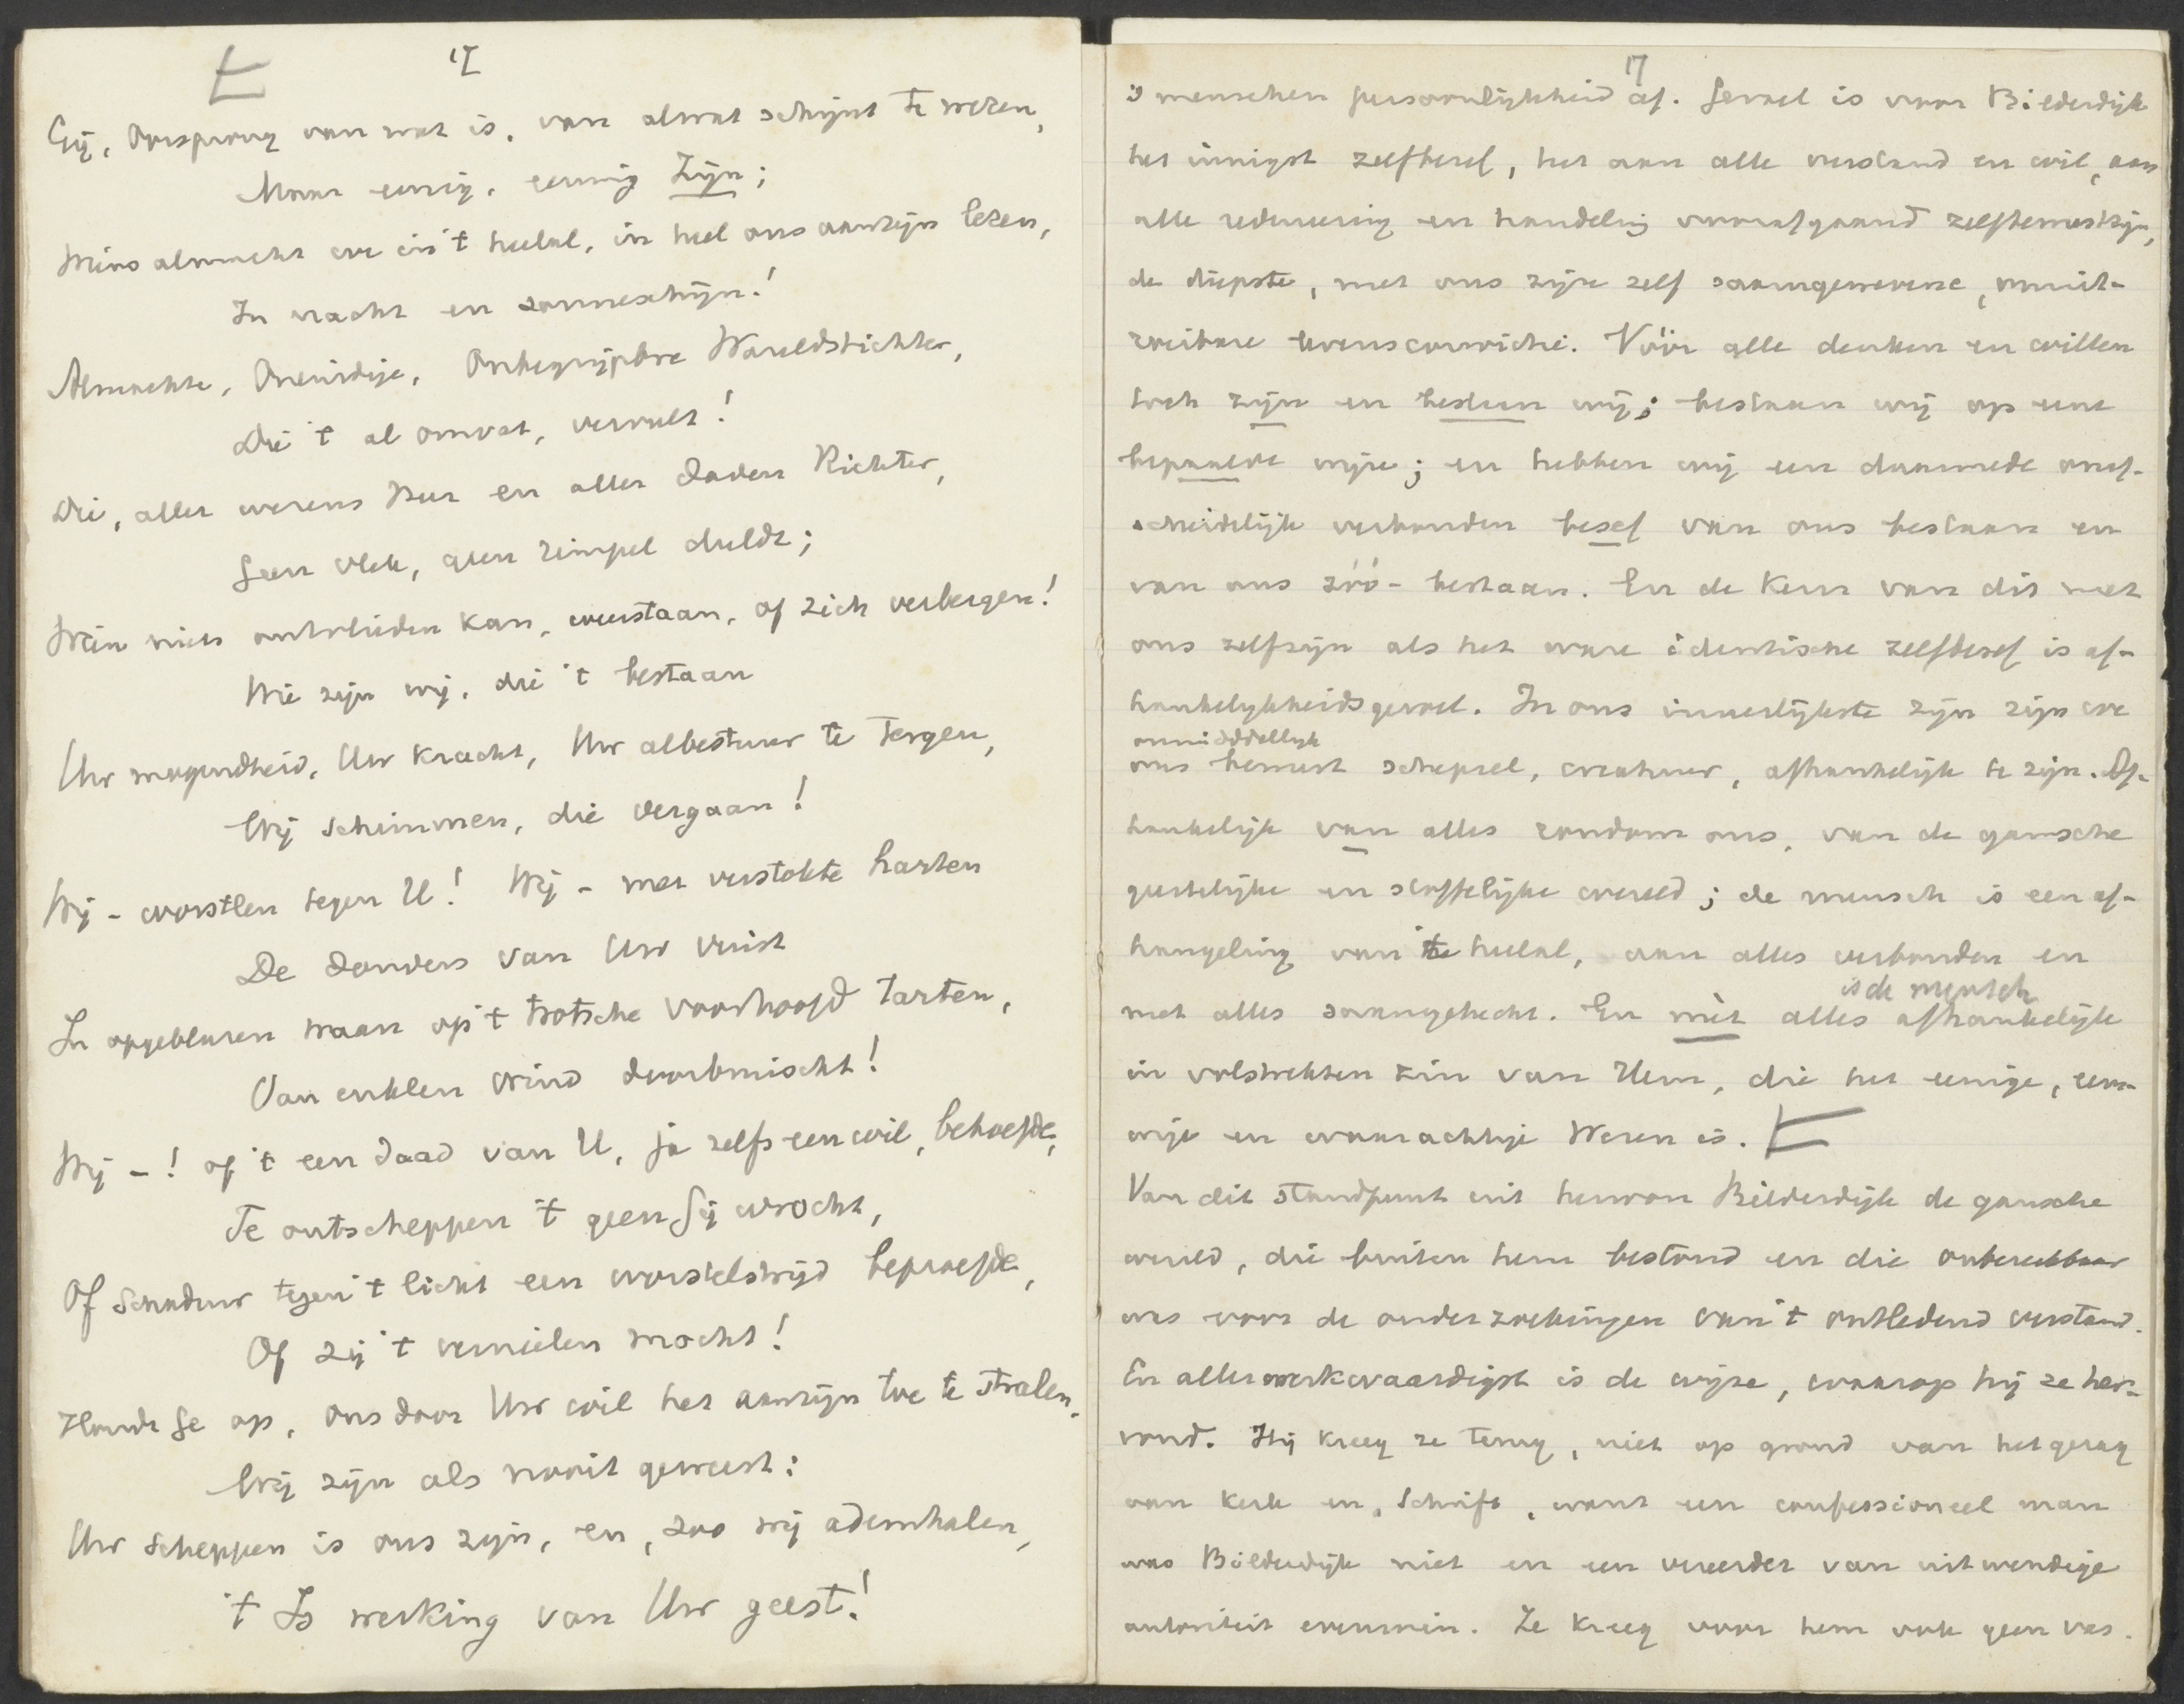 17
Gij, Oorsprong van wat is, van alwat schijnt te wezen,
Maar eenig, eeuwig Zijn;
Wiens almacht we in 't heelal, in heel ons aanzijn lezen,
In nacht en zonneschijn!
Almachte, Oneindige, Onbegrijpbre Wareldstichter,
Die 't al omvat, vervult!
Die, aller wezens Heer en aller daden Richter,
Geen vlek, geen rimpel duldt;
Wien niets ontvlieden kan, weerstaan, of zich verbergen!
Wie zijn wij, die 't bestaan
Uw mogendheid, Uw kracht, Uw albestuur te tergen,
Wij schimmen, die vergaan!
Wij - worstlen tegen U! Wij - met verstokte harten
De donders van Uw vuist
In opgeblazen waan op 't trotsche voorhoofd tarten,
Van enklen wind doorbruischt!
Wij -! of 't een daad van U, ja zelfs een wil, behoefde,
Te ontscheppen 't geen Gij wrocht,
Of schaduw tegen 't licht een worstelstrijd beproefde,
Of zij 't vernielen mocht!
Houdt Ge op, ons door Uw wil het aanzijn toe te stralen,
Wij zijn als nooit geweest:
Uw scheppen is ons zijn, en, zoo wij ademhalen,
't Is werking van Uw geest!
17
's menschen persoonlijkheid af. Gevoel is voor Bilderdijk
het innigst zelfbesef, het aan alle verstand en wil, aan
alle redeneering en handeling voorafgaand zelfbewustzijn,
de diepste, met ons zijn zelf saamgewevene, onuit-
roeibare levensconvictie. Vóór alle denken en willen
toch zijn en bestaan wij; bestaan wij op eene
bepaalde wijze; en hebben wij een daarmede onaf-
scheidelijk verbonden besef van ons bestaan en
van ons zóó-bestaan. En de kern van dit met
ons zelfzijn als het ware identische zelfbesef is af-
hankelijkheidsgevoel. In ons innerlijkste zijn zijn we
onmiddellijk
ons bewust schepsel, creatuur, afhankelijk te zijn. Af-
hankelijk van alles rondom ons, van de gansche
geestelijke en stoffelijke wereld; de mensch is een af-
hangeling van 't heelal, aan alles verbonden en
is de mensch
met alles saamgehecht. En mèt alles afhankelijk
in volstrekten zin van Hem, die het eenige, eeu-
wige en waarachtige Wezen is.
Van dit standpunt uit herwon Bilderdijk de gansche
wereld, die buiten hem bestond en die onbereikbaar
was voor de onderzoekingen van 't ontledend verstand.
En allermerkwaardigst is de wijze, waarop hij ze her-
vond. Hij kreeg ze terug, niet op grond van het gezag
van kerk en Schrift, want een confessioneel man
was Bilderdijk niet en een vereerder van uitwendige
autoriteit evenmin. Ze kreeg voor hem ook geen vas-